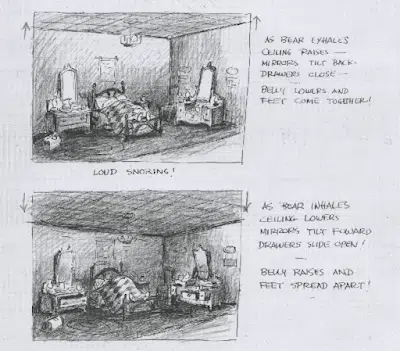 AS BEAR EXHALES
CEILING RAISES —
MIRRORS TILT BACK-
DRAWERS CLOSE —
BELLY LOWERS AND
FEET COME TOGETHER!
LOUD SNORING!
AS BEAR INHALES
CEILING LOWERS
MIRRORS TILT FOWARD
DRAWERS SLIDE OPEN!
—
BELLY RAISES AND
FEET SPREAD APART!